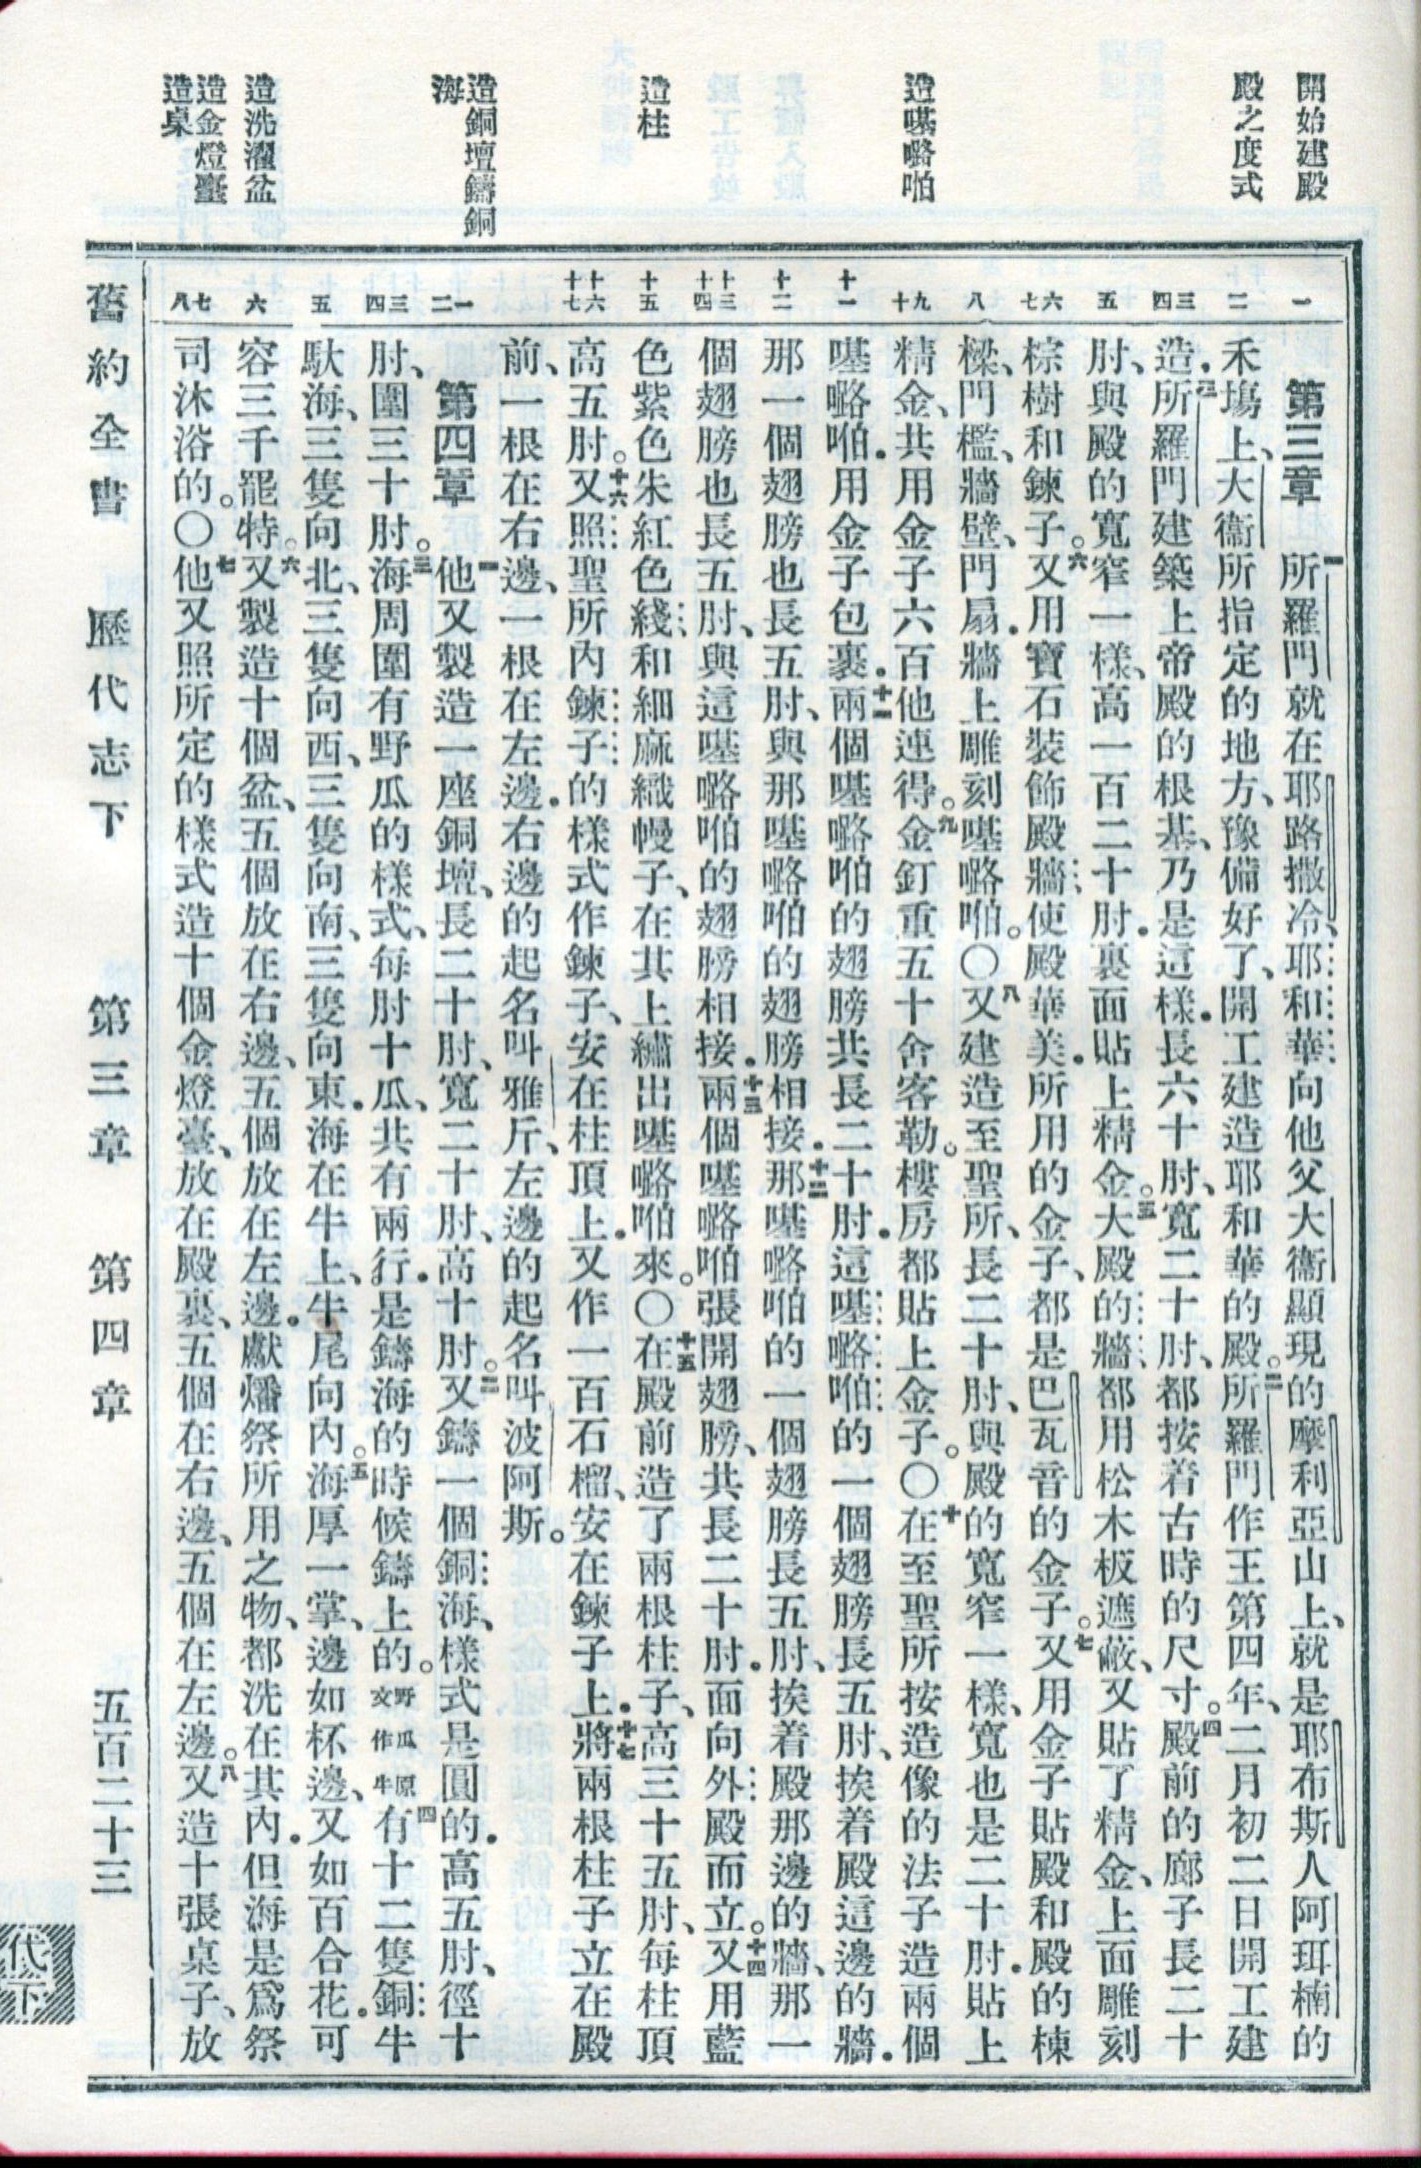 開始建殿
殿之度式
造𠼻㗉啪
造柱
造銅壇鑄銅
海
造洗濯盆
造金燈臺
造桌
一
二
三四
五
六七
八
九十
十一
十二
十三十四
十五
十六十七
一二
三四
五
六
七八
第三章 一所羅門就在耶路撒冷、耶和華向他父大衞顯現的摩利亞山上、就是耶布斯人阿珥楠的
禾場上、大衞所指定的地方、豫備好了、開工建造耶和華的殿。二所羅門作王第四年、二月初二日開工建
造．三所羅門建築上帝殿的根基、乃是這樣．長六十肘、寬二十肘、都按着古時的尺寸。四殿前的廊子長二十
肘、與殿的寬窄一樣、高一百二十肘．裏面貼上精金。五大殿的牆、都用松木板遮蔽、又貼了精金、上面雕刻
棕樹和鍊子。六又用寶石裝飾殿牆使殿華美．所用的金子、都是巴瓦音的金子。七又用金子貼殿和殿的棟
樑、門檻、牆壁、門扇．牆上雕刻𠼻㗉啪。〇八又建造至聖所、長二十肘、與殿的寬窄一樣、寬也是二十肘．貼上
精金、共用金子六百他連得。九金釘重五十舍客勒。樓房都貼上金子。〇十在至聖所按造像的法子造兩個
𠼻㗉啪．用金子包裹．十一兩個𠼻㗉啪的翅膀共長二十肘．這𠼻㗉啪的一個翅膀長五肘、挨着殿這邊的牆．
那一個翅膀也長五肘、與那𠼻㗉啪的翅膀相接．十二那𠼻㗉啪的一個翅膀長五肘、挨着殿那邊的牆、那一
個翅膀也長五肘、與這𠼻㗉啪的翅膀相接．十三兩個𠼻㗉啪張開翅膀、共長二十肘．面向外殿而立。十四又用藍
色紫色朱紅色綫和細麻織幔子、在其上繡出𠼻㗉啪來。〇十五在殿前造了兩根柱子、高三十五肘、每柱頂
高五肘。十六又照聖所內鍊子的樣式作鍊子、安在柱頂上．又作一百石榴、安在鍊子上．十七將兩根柱子立在殿
前、一根在右邊、一根在左邊．右邊的起名叫雅斤、左邊的起名叫波阿斯。
第四章 一他又製造一座銅壇、長二十肘、寬二十肘、高十肘。二又鑄一個銅海、樣式是圓的．高五肘、徑十
肘、圍三十肘。三海周圍有野瓜的樣式、每肘十瓜、共有兩行．是鑄海的時候鑄上的。野瓜原文作牛四有十二隻銅牛
馱海、三隻向北、三隻向西、三隻向南、三隻向東．海在牛上、牛尾向內。五海厚一掌、邊如杯邊、又如百合花．可
容三千罷特。六又製造十個盆、五個放在右邊、五個放在左邊．獻燔祭所用之物、都洗在其內．但海是爲祭
司沐浴的。〇七他又照所定的樣式造十個金燈臺、放在殿裏、五個在右邊、五個在左邊。八又造十張桌子、放
舊約全書 歷代志下 第三章 第四章 五百二十三
代下